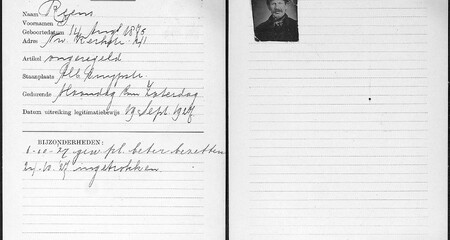 Naam Ryen
Voornamen
Geboortedatum 14 Aug. 1875
Adres Nw. Kerkstr. 211
Artikel ongeregeld
Staanplaats Alb. Cuypstr.
Gedurende Maandag t/m Zaterdag
Datum uitreiking legitimatiebewijs 19 Sept. 1927
BIJZONDERHEDEN:
1-10-27 gew. pl. beter bezetten
24-10-27 ingetrokken.